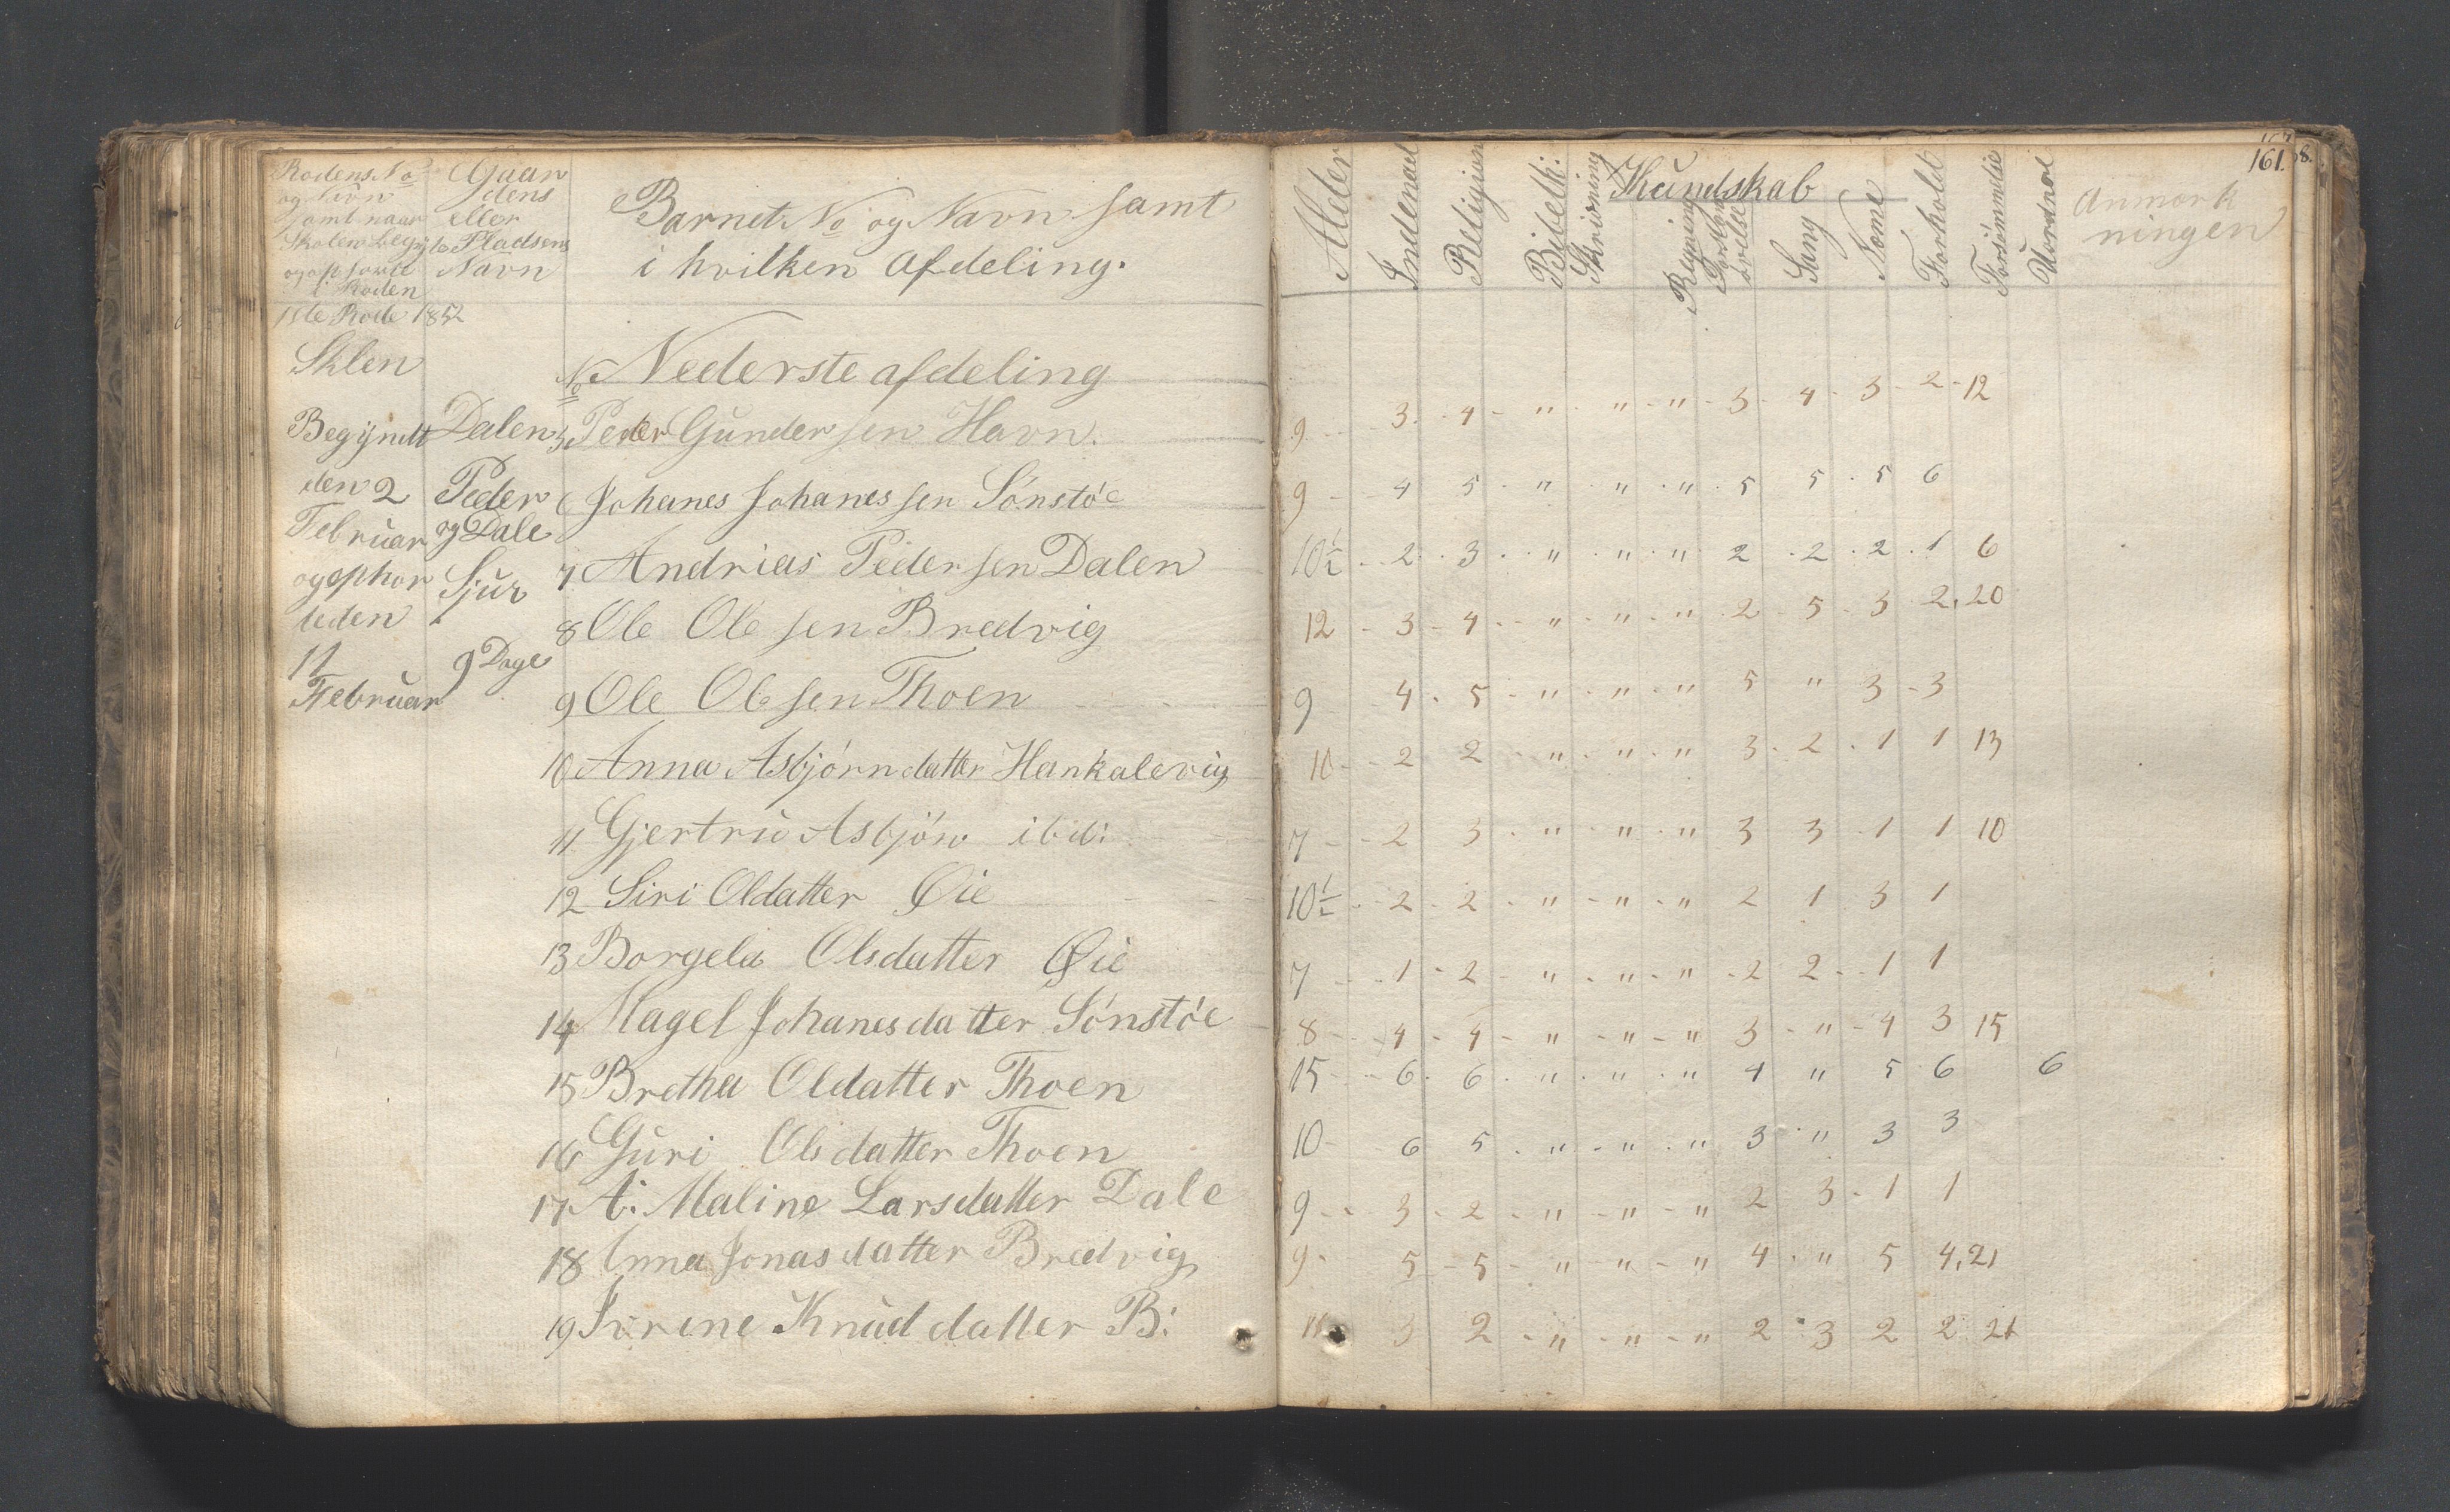 Rodens No
og Navn
samt naar
Skolen begyte
og ophørte
i Roden
Gaar
dens
eller
Pladsens
Navn
Barnets No og Navn samt
i hvilken afdeling.
Alder
Indenad
Religion
Bibelhi:
Skrivning
Kundskab
Regning
Sang
Neme
Forhold
Forsömmelse
Uordnal
Anmærk
ningen
161.
1ste Rode 1852
Sklen
Begÿndt
den 2
Februar
og ophor
teden
11
Februar
Dalen
Peder
og Dale
Sjur
9 Dage
No Nederste afdeling
5 Peder Gundersen Havn. 9 3 4 " " " 3 4 3 2 12
6 Johanes Johanessen Sönstöe 9 4 5 " " " 5 5 5 6
7 Andrias Pedersen Dalen 10½ 2 3 " " " 2 2 2 1 6
8 Ole Olesen Bredvig 12 3 4 " " " 2 5 3 2 20
9 Ole Olesen Thoen 9 4 5 " " " 5 " 3 3
10 Anna Asbjörndatter Hankalevig 10 2 2 " " " 3 2 1 1 13
11 Gjertru Asbjörn ibid: 7 2 3 " " " 3 3 1 1 10
12 Siri Oldatter Øie 10½ 2 2 " " " 2 1 3 1
13 Borgela Olsdatter Øie 7 1 2 " " " 2 2 1 1
14 Magel Johanesdatter Sönstöe 8 4 4 " " " 3 " 4 3 15
15 Bretha Oldatter Thoen 15 6 6 " " " 4 " 5 6 6
16 Guri Olsdatter Thoen 10 6 5 " " " 3 " 3 3
17 A: Maline Larsdatter Dale 9 3 2 " " " 2 3 1 1
18 Anna Jonasdatter Bredvig 9 5 5 " " " 4 " 5 4 21
19 Ivrine Knuddatter B: 11 3 2 " " " 2 3 2 2 21